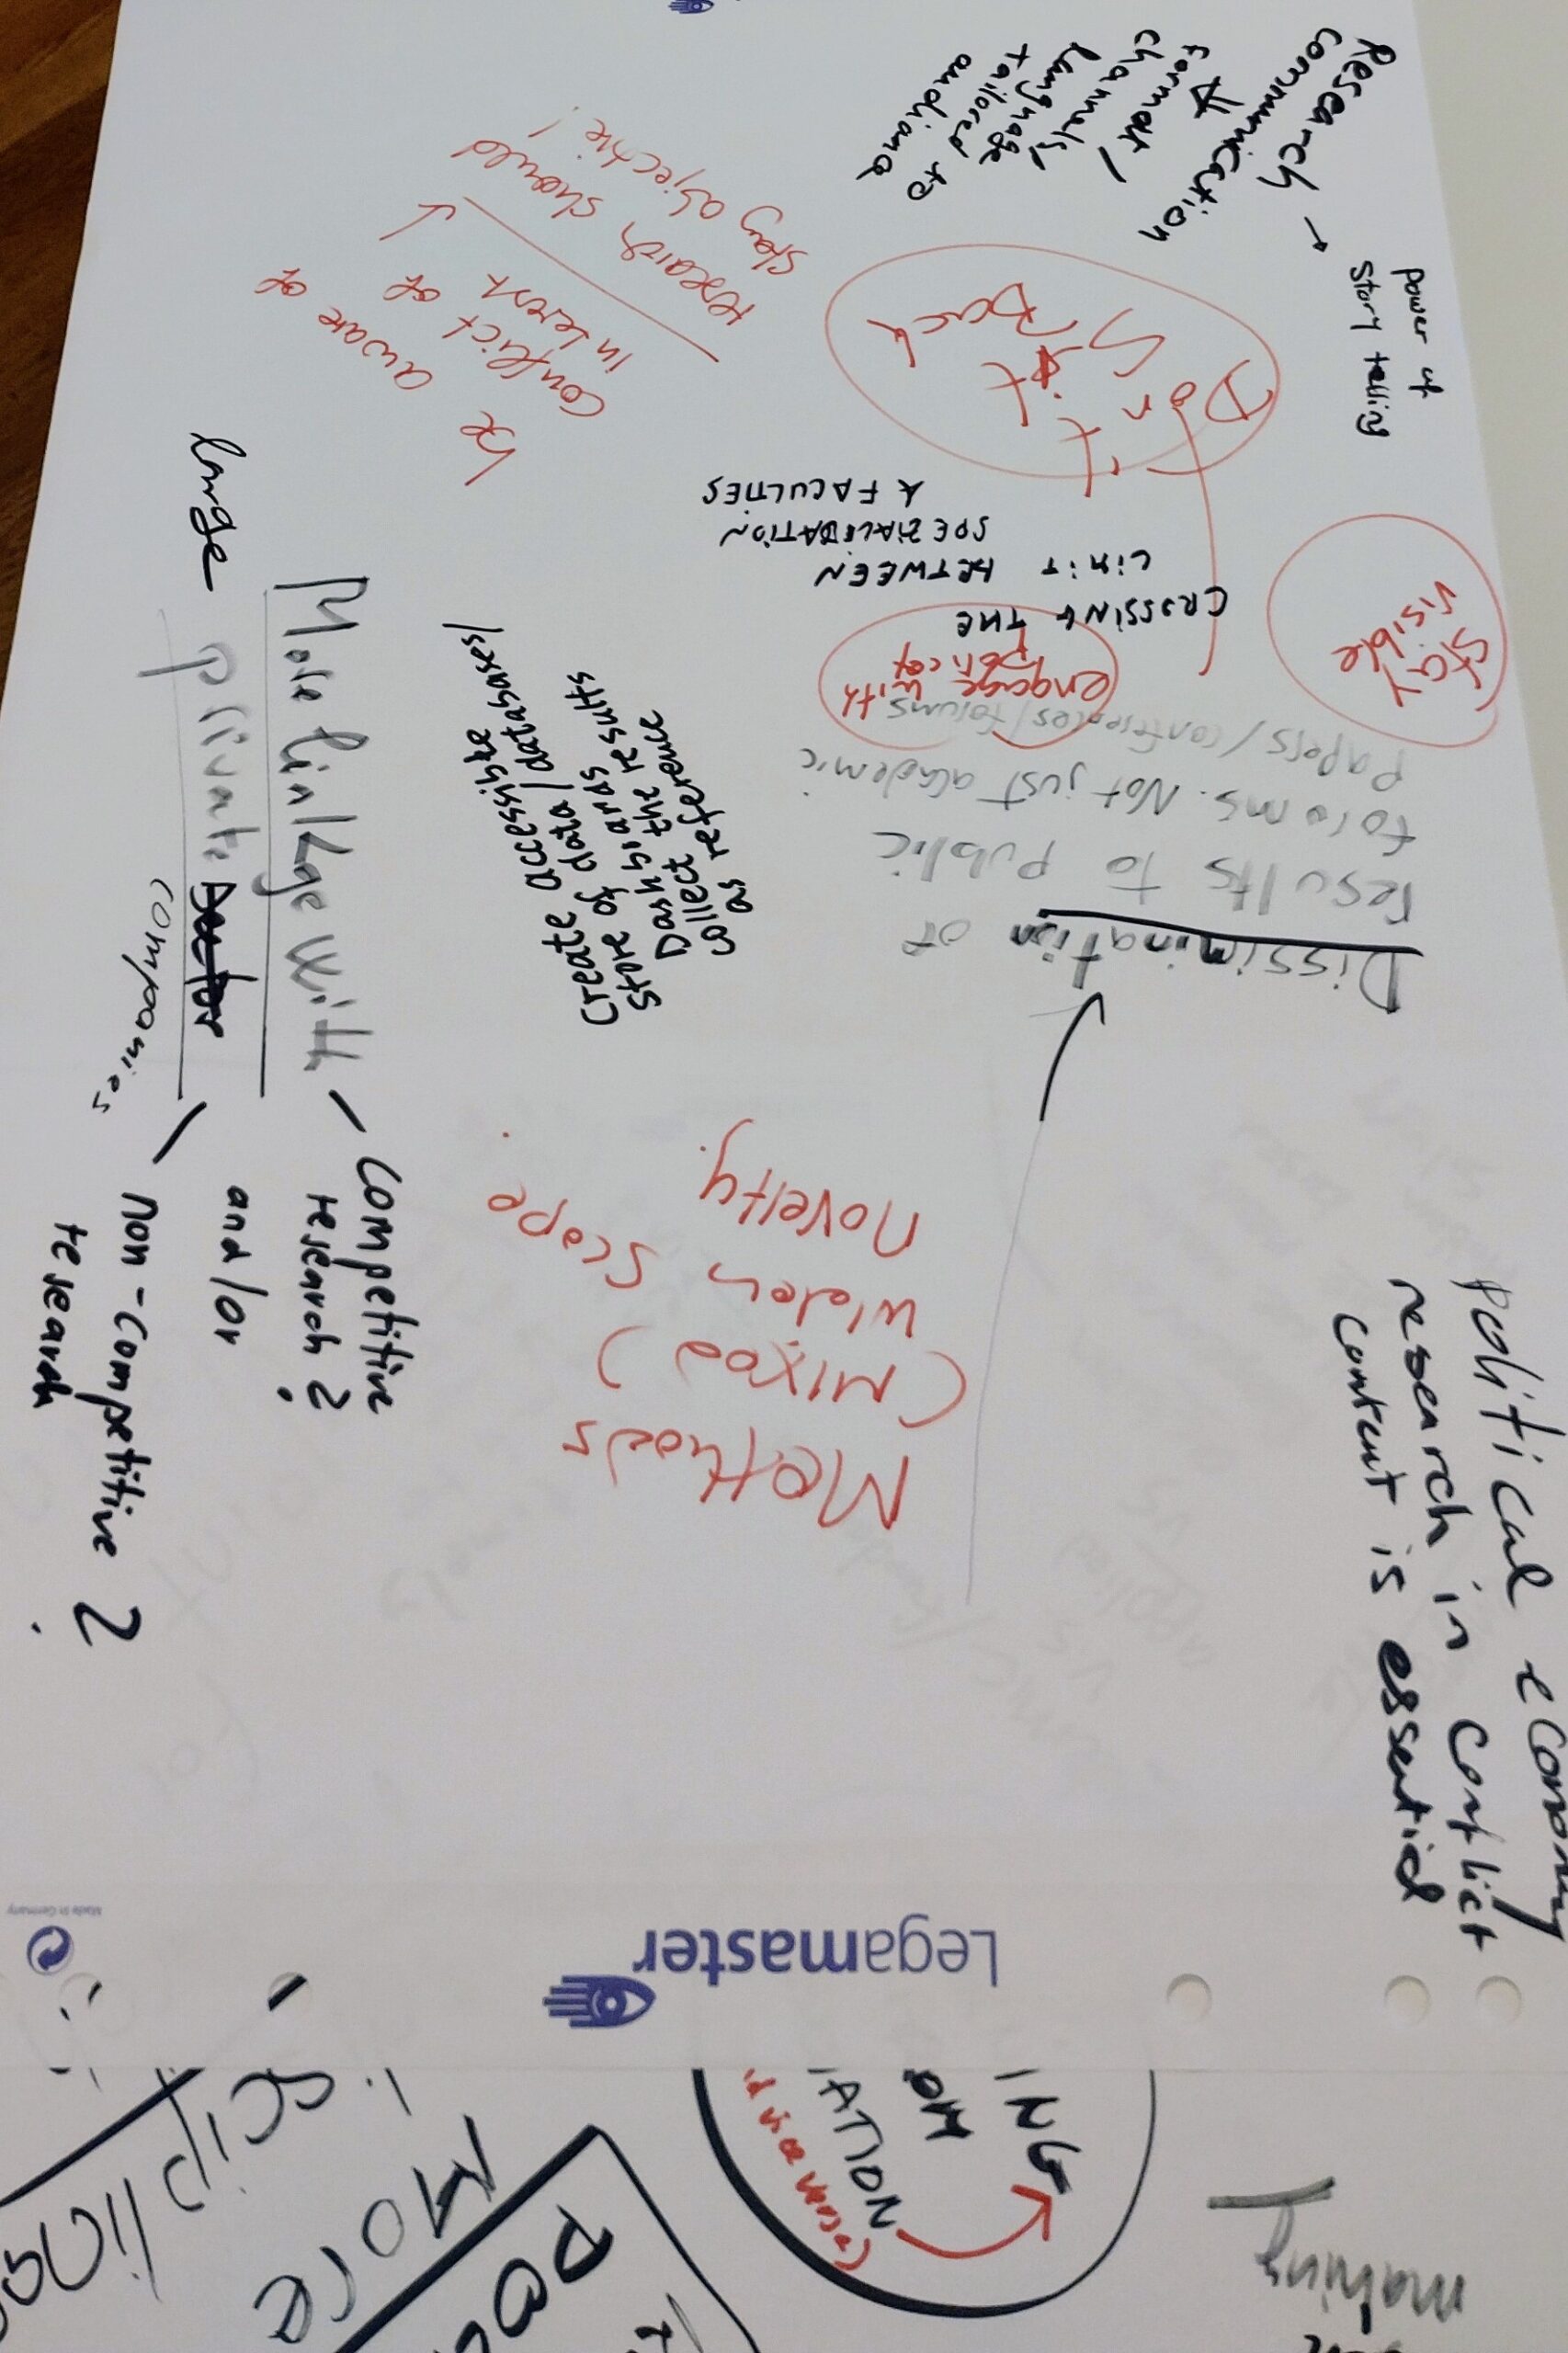 Research
Communication
format/
channels/
language
tailored to
→ power of
story telling
Don't
Sit
Back
stay
visible
engage with
CROSSING THE
LIMIT BETWEEN
SPEZIALIZATION
& FACULTIES
research should
stay objective!
be aware of
conflict of
interest
Dissimination of
results to public
forams. Not just academic
Papers/conferences/forums
Create accessible
store of data/databases/
Dashboards
collect the results
as reference
More linkage with
large private Sector
companies
Competitive
research?
and/or
non-competitive
research ?
Methods
(Mixed)
wider scope
novelty.
political economy
research in conflict
context is essential
Legamaster
Made in Germany
ING
OM
ATION
More
making